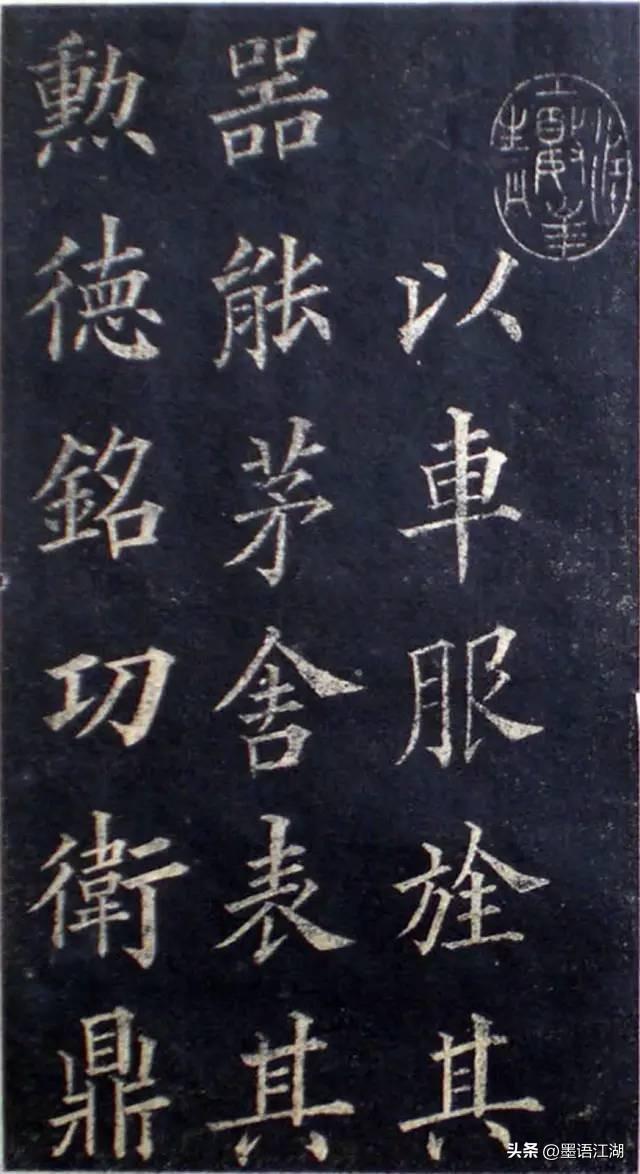 以車服旌其
器能茅舍表其
勲徳銘功衛鼎
头条@墨语江湖